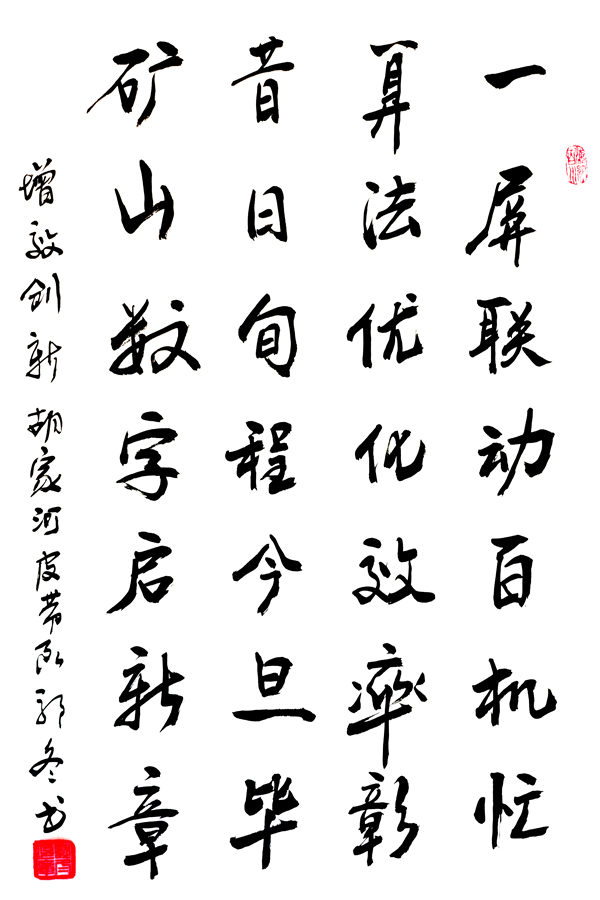 一屏联动百机忙
算法优化效率彰
昔日旬程今旦毕
矿山数字启新章
增效创新 胡家河皮带队郭冬书